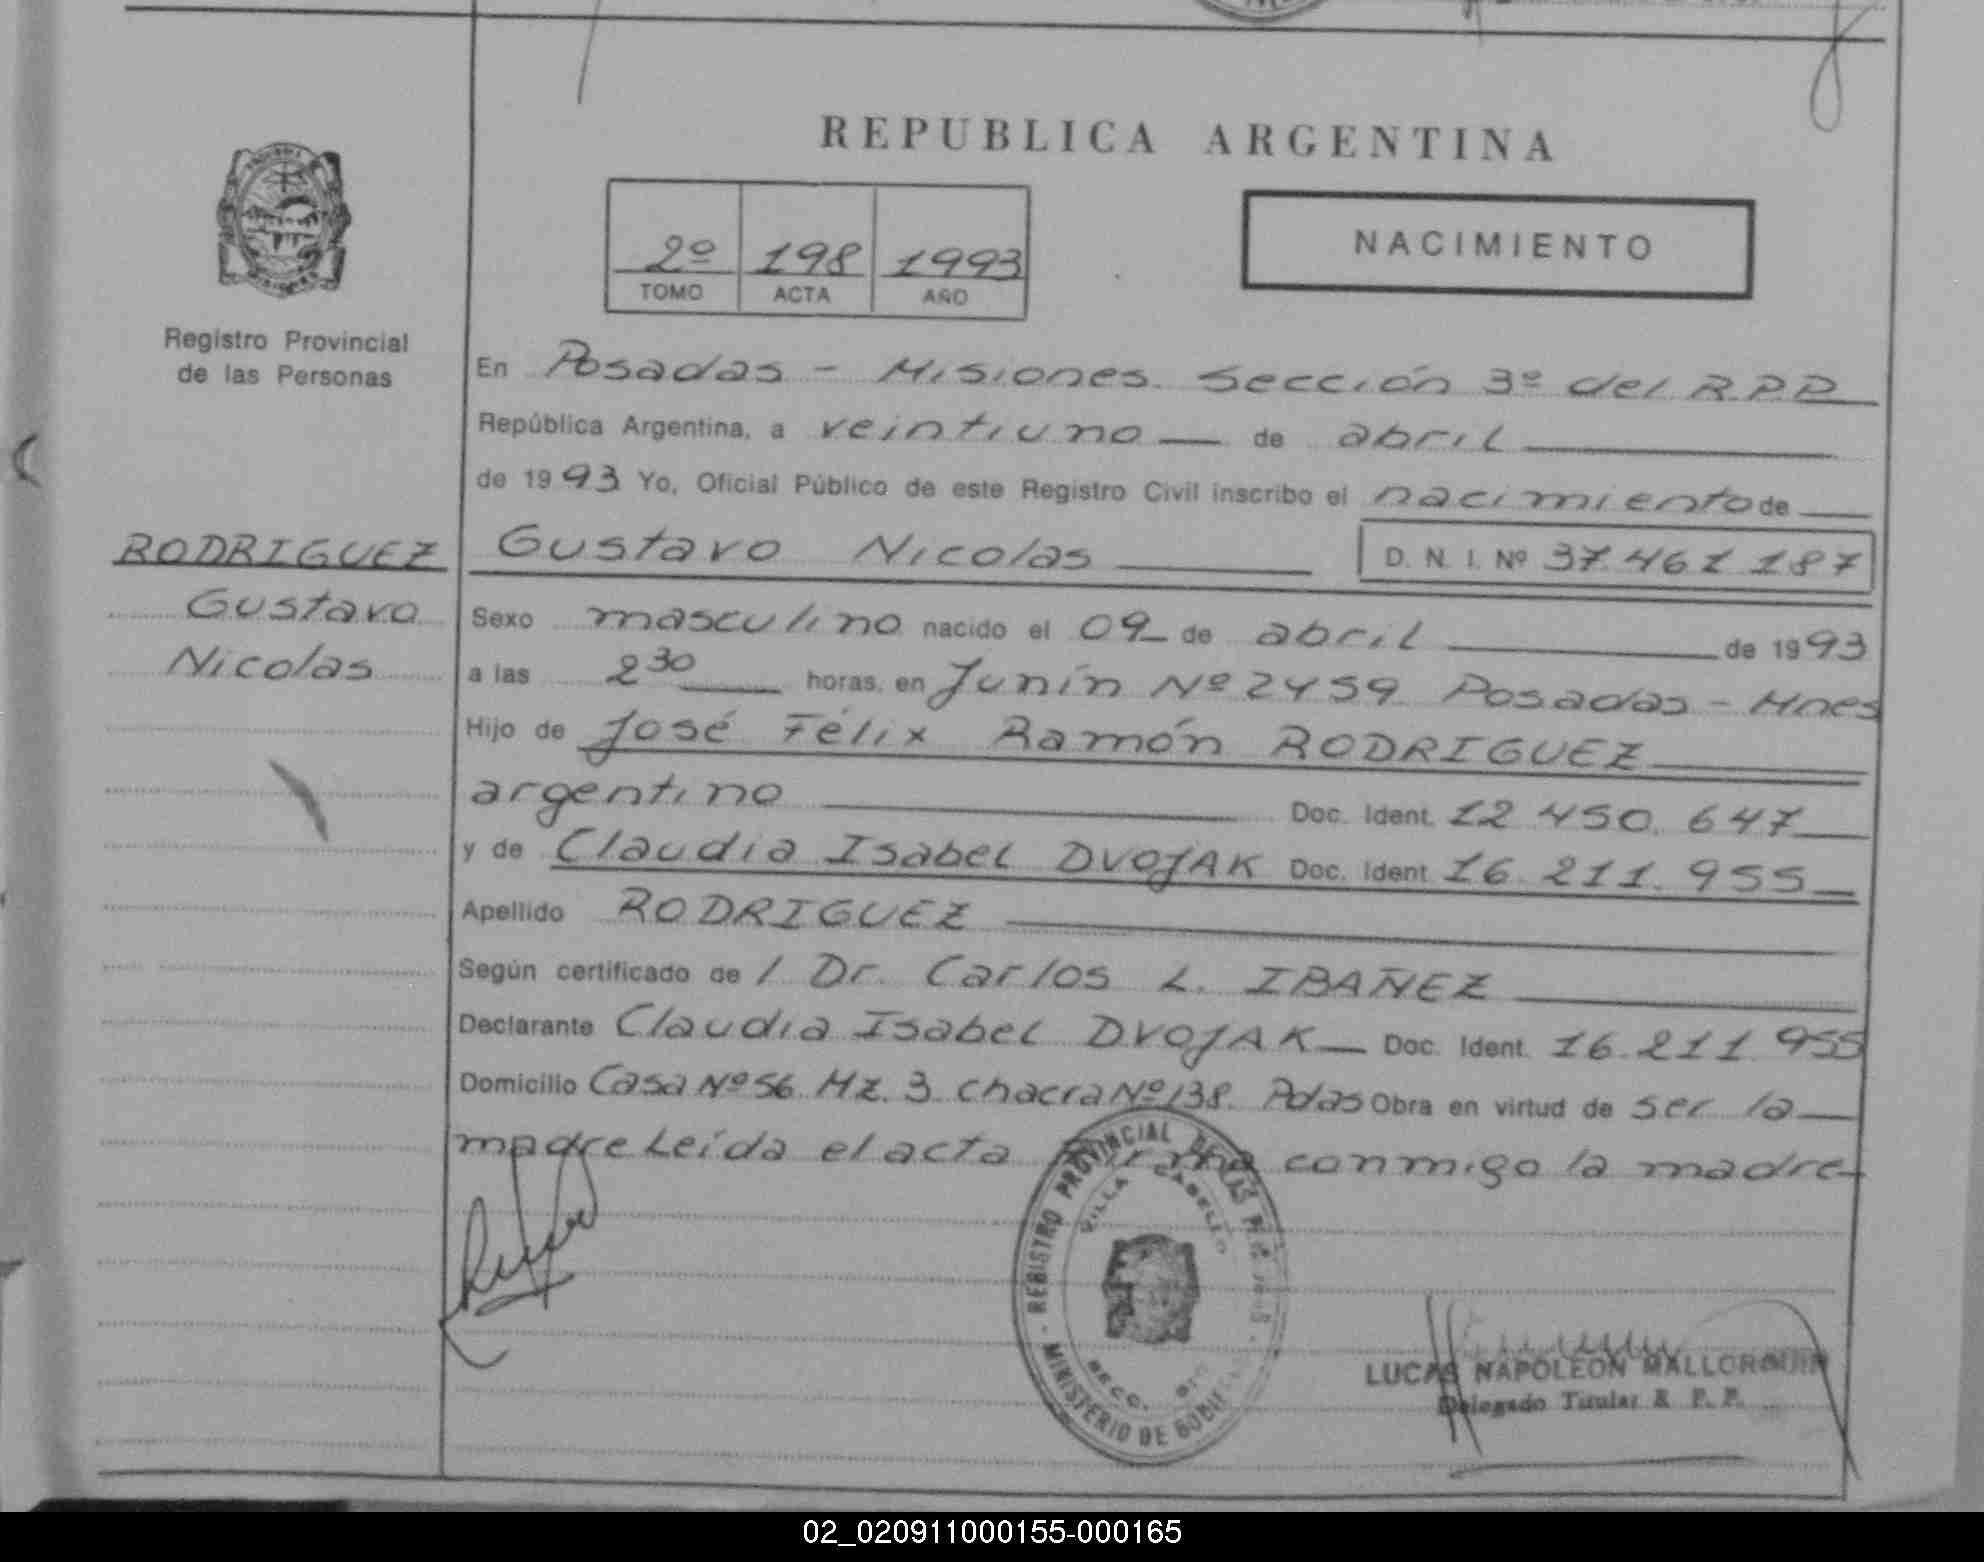 REPUBLICA ARGENTINA
2º 198 1993
TOMO ACTA AÑO
NACIMIENTO
Registro Provincial
de las Personas
En Posadas - Misiones. Sección 3º del R.P.P.
República Argentina, a veintiuno de abril
de 1993 Yo, Oficial Público de este Registro Civil inscribo el nacimiento de
RODRIGUEZ
Gustavo
Nicolas
Gustavo Nicolas D. N. I. Nº 37.461.187
Sexo masculino nacido el 09 de abril de 1993
a las 2 30 horas, en Junín Nº 2459 Posadas - Mnes
Hijo de José Félix Ramón RODRIGUEZ
argentino Doc. Ident. 12.450.647
y de Claudia Isabel DVOJAK Doc. Ident. 16.211.955
Apellido RODRIGUEZ
Según certificado de / Dr. Carlos L. IBAÑEZ
Declarante Claudia Isabel DVOJAK Doc. Ident. 16.211.955
Domicilio Casa Nº 56 Mz. 3 chacra Nº 138. Pdas Obra en virtud de ser la
madre Leída el acta firma conmigo la madre
REGISTRO PROVINCIAL DE LAS
VILLA CABELLO
SECC.
MINISTERIO DE
LUCAS NAPOLEON MALLORQUIN
Delegado Titular R. P. P.
02_020911000155-000165